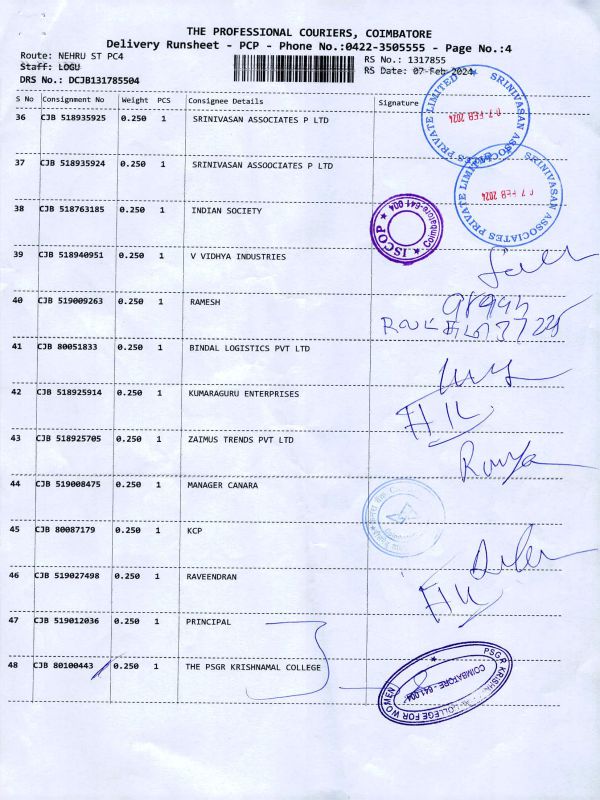 THE PROFESSIONAL COURIERS, COIMBATORE
Delivery Runsheet - PCP - Phone No.:0422-3505555 - Page No.:4
Route: NEHRU ST PC4 RS No.: 1317855
Staff: LOGU RS Date: 07-Feb-2024
DRS No.: DCJB131785504
S No Consignment No Weight PCS Consignee Details Signature
36 CJB 518935925 0.250 1 SRINIVASAN ASSOCIATES P LTD
SRINIVASAN ASSOCIATES PRIVATE LIMITED
07 FEB 2024
37 CJB 518935924 0.250 1 SRINIVASAN ASSOOCIATES P LTD
SRINIVASAN ASSOCIATES PRIVATE LIMITED
07 FEB 2024
38 CJB 518763185 0.250 1 INDIAN SOCIETY
ISCOP Coimbatore-641 004
39 CJB 518940951 0.250 1 V VIDHYA INDUSTRIES
40 CJB 519009263 0.250 1 RAMESH
41 CJB 80051833 0.250 1 BINDAL LOGISTICS PVT LTD
42 CJB 518925914 0.250 1 KUMARAGURU ENTERPRISES
43 CJB 518925705 0.250 1 ZAIMUS TRENDS PVT LTD
Ramya
44 CJB 519008475 0.250 1 MANAGER CANARA
45 CJB 80087179 0.250 1 KCP
46 CJB 519027498 0.250 1 RAVEENDRAN
47 CJB 519012036 0.250 1 PRINCIPAL
48 CJB 80100443 0.250 1 THE PSGR KRISHNAMAL COLLEGE
PSGR COLLEGE FOR WOMEN
COIMBATORE - 641 004